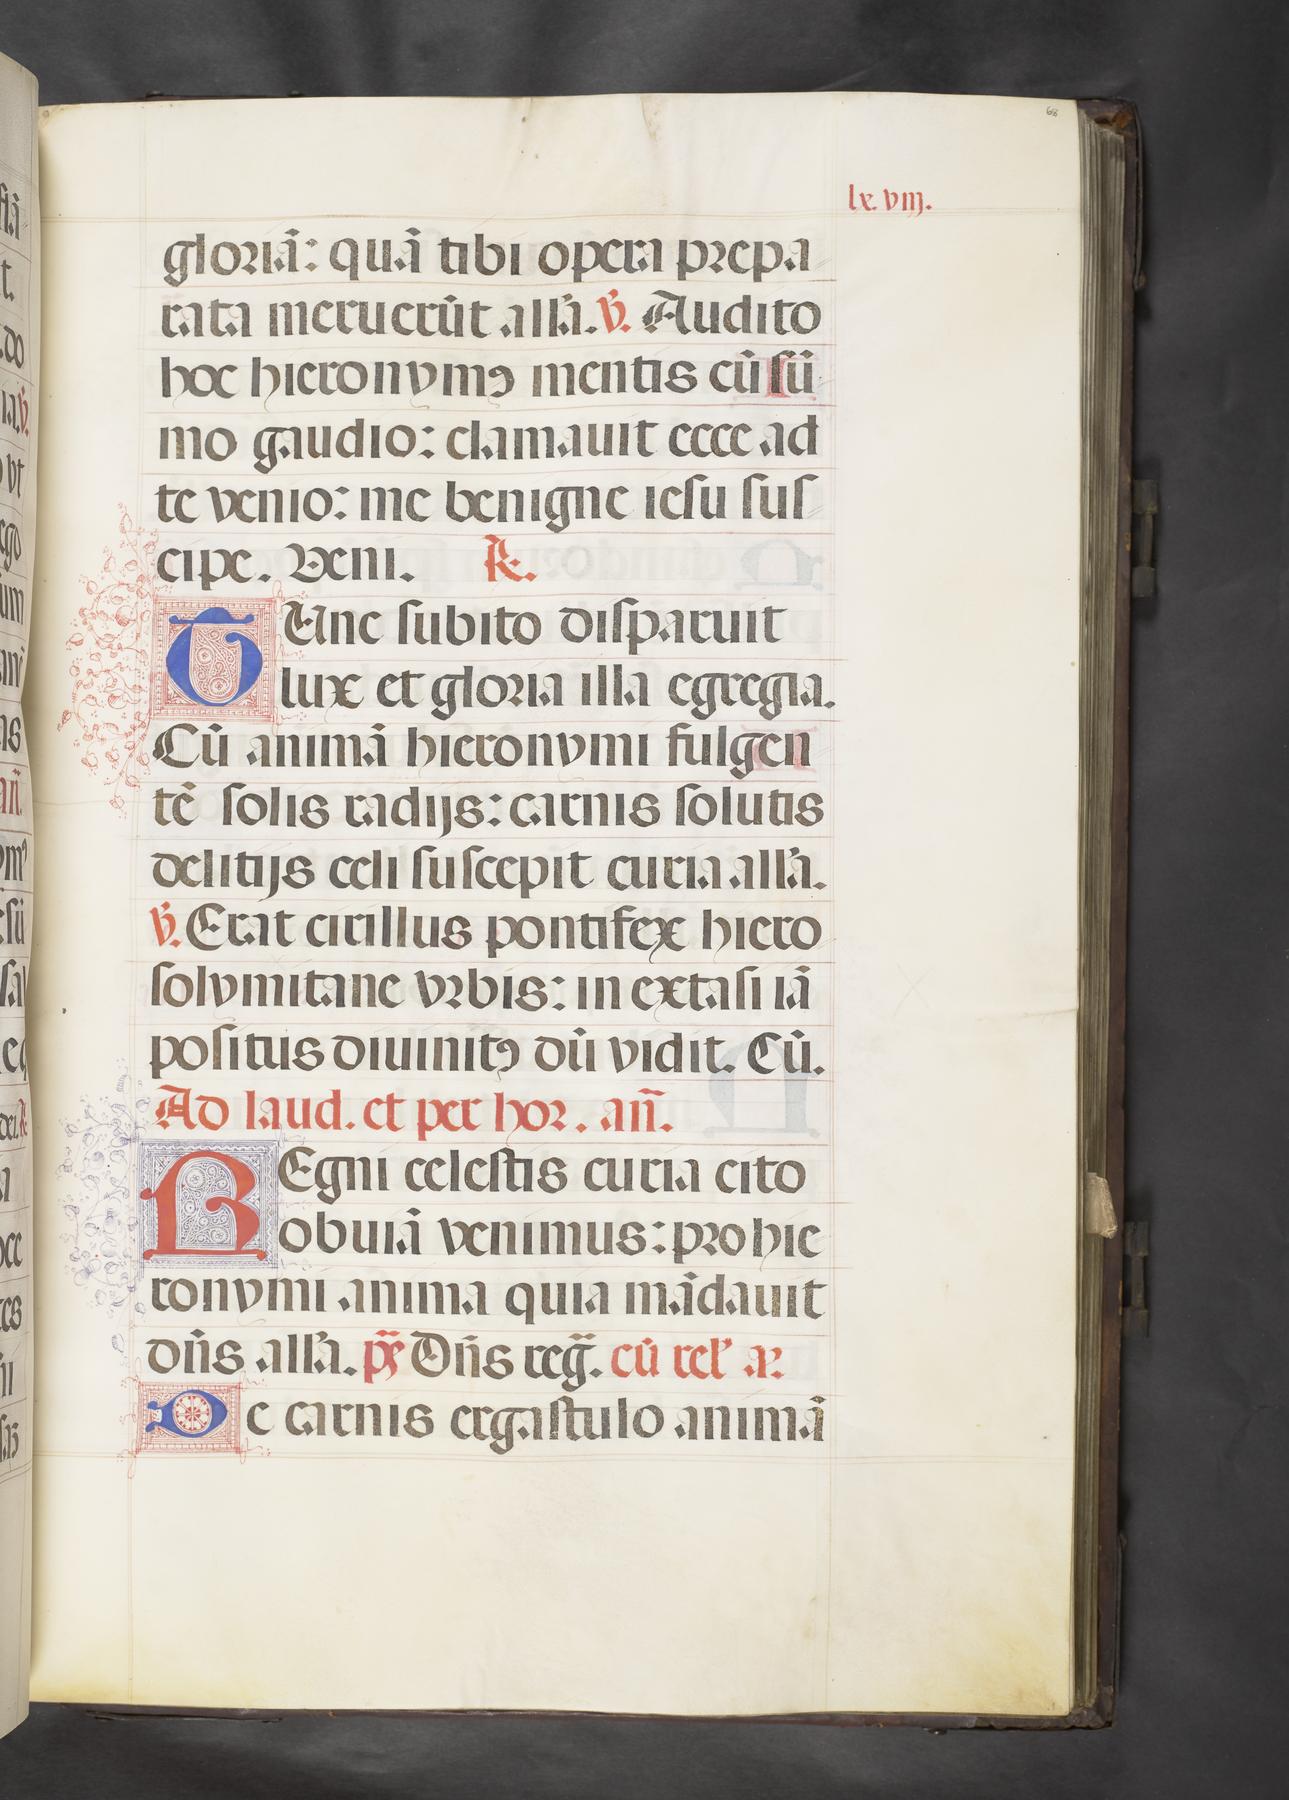 68
lx.viij.
gloriā: quā tibi opera prepa
rata meruerūt all'a. v̄. Audito
hoc hieronymꝯ mentis cū ſū
mo gaudio: clamauit ecce ad
te venio: me benigne ieſu ſuſ
cipe. Veni. R.
TUnc ſubito diſparuit
lux et gloria illa egregia.
Cū animā hieronymi fulgen
tē ſolis radijs: carnis ſolutis
delitijs celi ſuſcepit curia all'a.
v̄. Erat cirillus pontifex hiero
ſolymitane vrbis: in extaſi iā
poſitus diuinitꝯ dū vidit. Cū.
Ad laud. et per hor. añ.
REgni celeſtis curia cito
obuiā venimus: pro hie
ronymi anima quia mādauit
dñs all'a. p̄s Dñs reḡ. cū rel' añ.
De carnis ergaſtulo animā